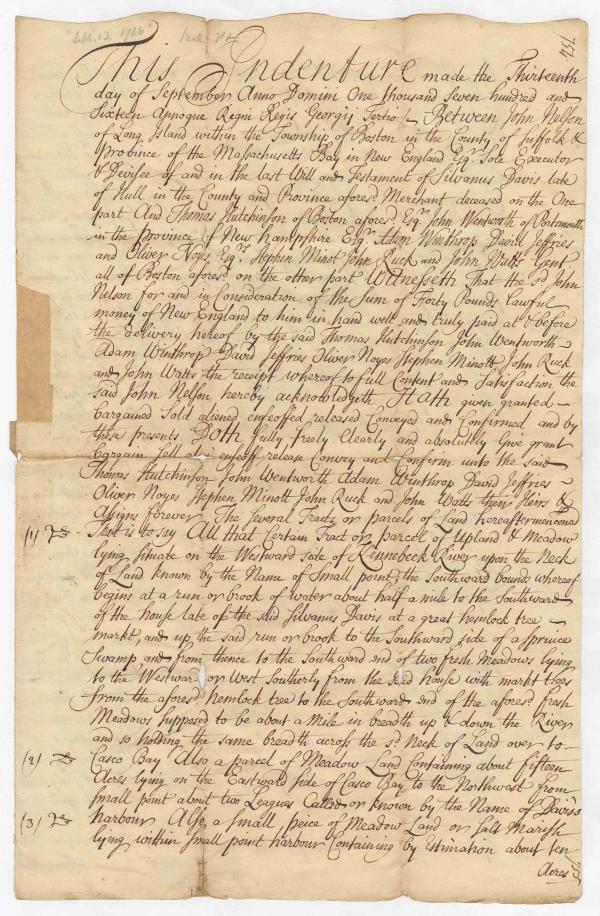 Sept. 13. 1716
754
This Indenture made the Thirteenth
day of September Anno Domini One thousand Seven hundred and
Sixteen Annoque Regni Regis Georgij Tertio - Between John Nelson
of Long Island within the Township of Boston in the County of Suffolk &
Province of the Massachusetts Bay in New England Esqr. Sole Executor
& Devisee of and in the last Will and Testament of Silvanus Davis late
of Hull in the County and Province aforesd. Merchant deceased on the One
part And Thomas Hutchinson of Boston aforesd. Esqr. John Wentworth of Portsmouth
in the Province of New hampshire Esqr. Adam Winthrop David Jeffries
and Oliver Noyes Esqrs. Stephen Minot John Ruck and John Watts Gent
all of Boston aforesd. on the other part Witnesseth That the sd. John
Nelson for and in Consideration of the Sum of Forty Pounds lawful
money of New England to him in hand well and truly paid at & before
the delivery hereof by the said Thomas Hutchinson John Wentworth -
Adam Winthrop David Jeffries Oliver Noyes Stephen Minott John Ruck
and John Watts the receipt whereof to full Content and Satisfaction the
said John Nelson hereby acknowledgeth Hath given granted -
bargained Sold aliened enfeoffed released Conveyed and Confirmed and by
these presents Doth fully, freely Clearly and absolutely Give grant
bargain sell alien enfeoffe release Convey and Confirm unto the said
Thomas Hutchinson John Wentworth Adam Winthrop David Jeffries -
Oliver Noyes Stephen Minott John Ruck and John Watts their Heirs &
Assigns forever The Several Tracts or parcels of Land hereaftermenconed
(1) That is to say All that Certain Tract or parcel of Upland & Meadow
lying situate on the Westward side of Kennebeck River upon the Neck
of Land known by the Name of Small point, the Southward bounds whereof
begins at a run or brook of water about half a mile to the Southward
of the house late of the said Silvanus Davis at a great hemlock tree -
markt, and up the said run or brook to the Southward side of a spruice
Swamp and from thence to the Southward end of two fresh Meadows lying
to the Westward or West Southerly from the said house with markt trees
from the aforesd. hemlock tree to the Southward end of the aforesd. fresh
Meadows Supposed to be about a Mile in breadth up & down the River
and so holding the same breadth across the sd. Neck of Land over to
(2) Casco Bay Also a parcel of Meadow Land Containing about fifteen
Acres lying on the Eastward side of Casco Bay to the Northwest from
small point about two Leagues Called or known by the Name of Davis's
(3) harbour Also a small peice of Meadow Land or Salt Marish
lying within small point harbour Containing by Estimation about ten
Acres